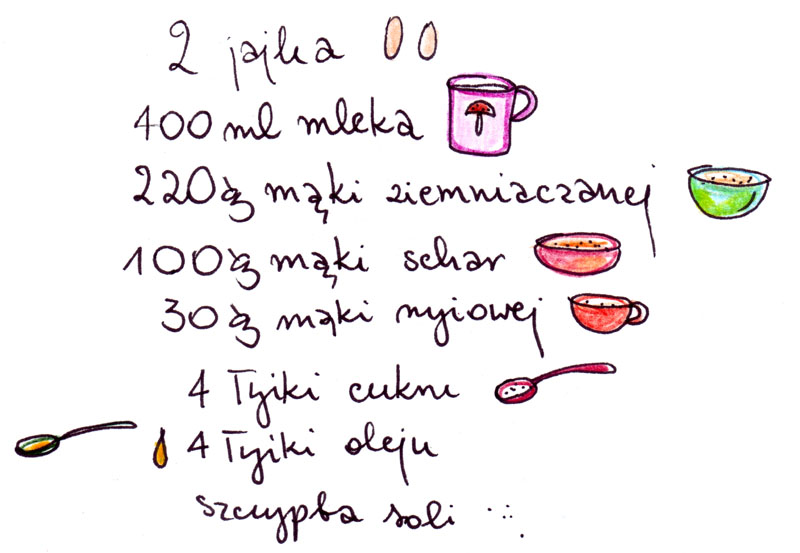 2 jajka
400 ml mleka
220g mąki ziemniaczanej
100g mąki schar
30g mąki ryżowej
4 łyżki cukru
4 łyżki oleju
szczypta soli